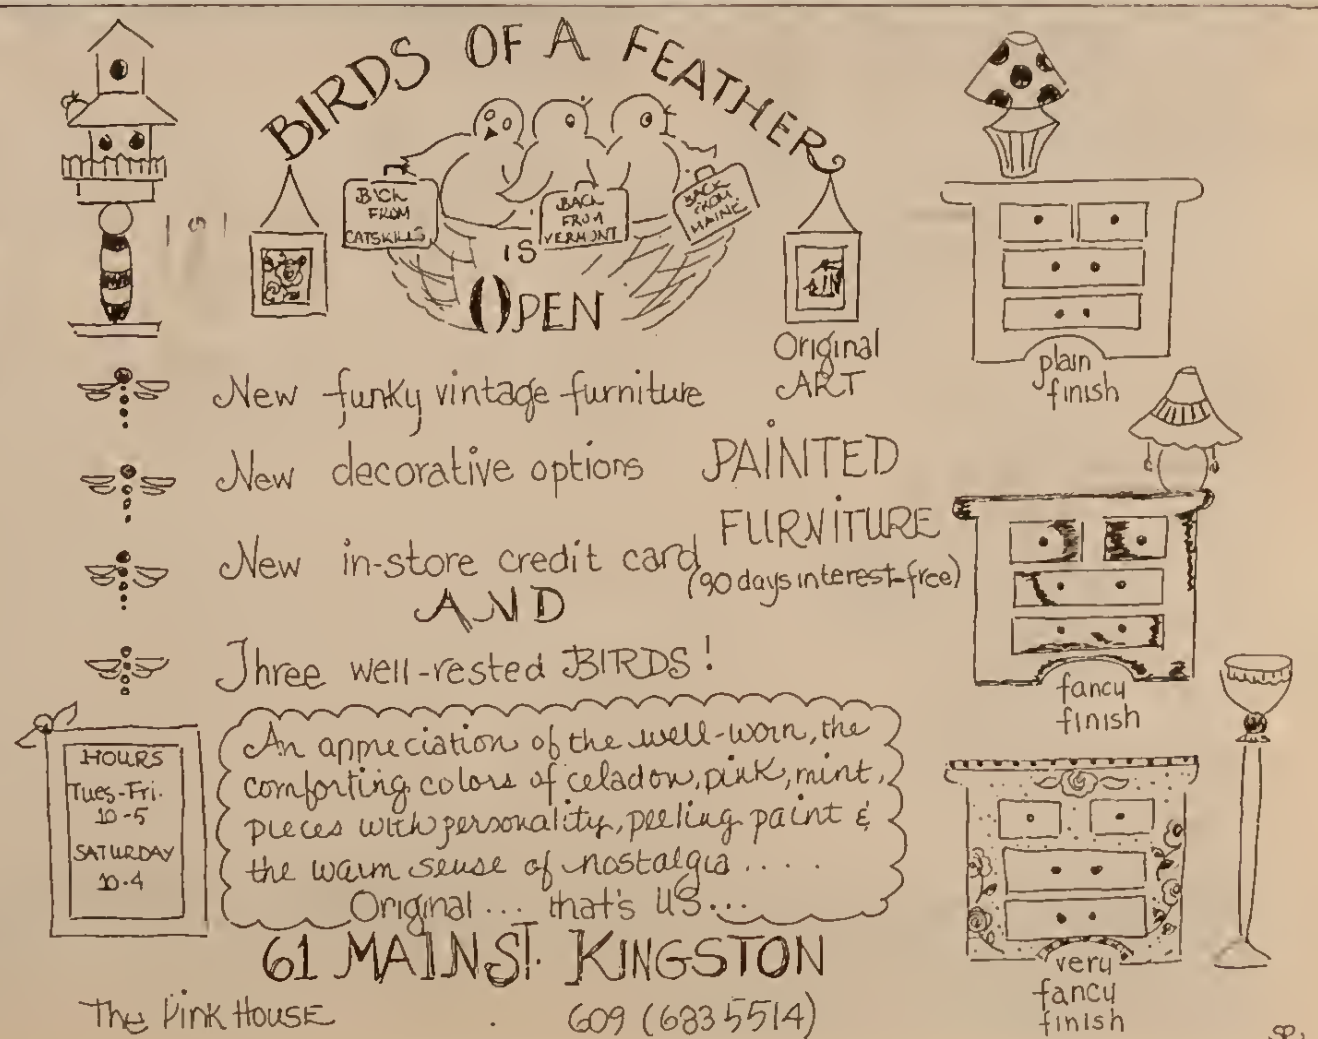 BIRDS OF A FEATHER
BACK
FROM
CATSKILLS
BACK
FROM
VERMONT
BACK
FROM
MAINE
IS
OPEN
Original
ART
New funky vintage furniture
New decorative options
PAINTED
FURNITURE
New in-store credit card
(90 days interest-free)
AND
Three well-rested BIRDS!
plain
finish
fancy
finish
very
fancy
finish
HOURS
Tues-Fri.
10-5
SATURDAY
10-4
An appreciation of the well-worn, the
comforting colors of celadon, pink, mint,
pieces with personality, peeling paint &
the warm sense of nostalgia.....
Original... that's US...
61 MAIN ST. KINGSTON
The Pink HOUSE
609 (683 5514)